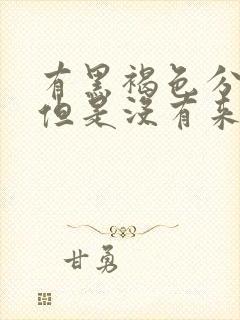 有黑褐色分
但是没有来
甘勇